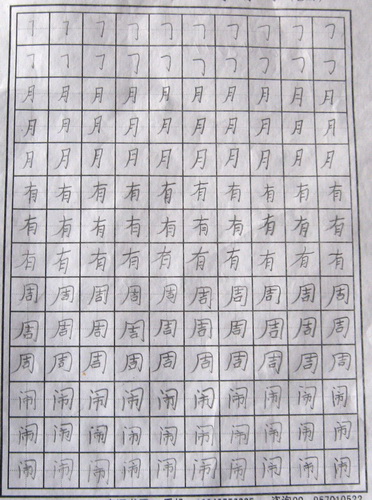 ㇆㇆㇆㇆㇆㇆㇆㇆㇆㇆
㇆㇆㇆㇆㇆㇆㇆㇆㇆㇆
月月月月月月月月月月
月月月月月月月月月月
月月月月月月月月月月
有有有有有有有有有有
有有有有有有有有有有
有有有有有有有有有有
周周周周周周周周周周
周周周周周周周周周周
周周周周周周周周周周
闹闹闹闹闹闹闹闹闹闹
闹闹闹闹闹闹闹闹闹闹
闹闹闹闹闹闹闹闹闹闹
咨询QQ